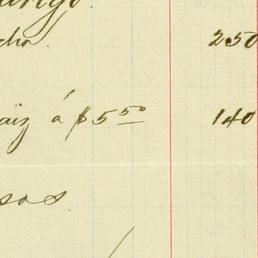 cho. 250
aiz á $5 50 140
sos.